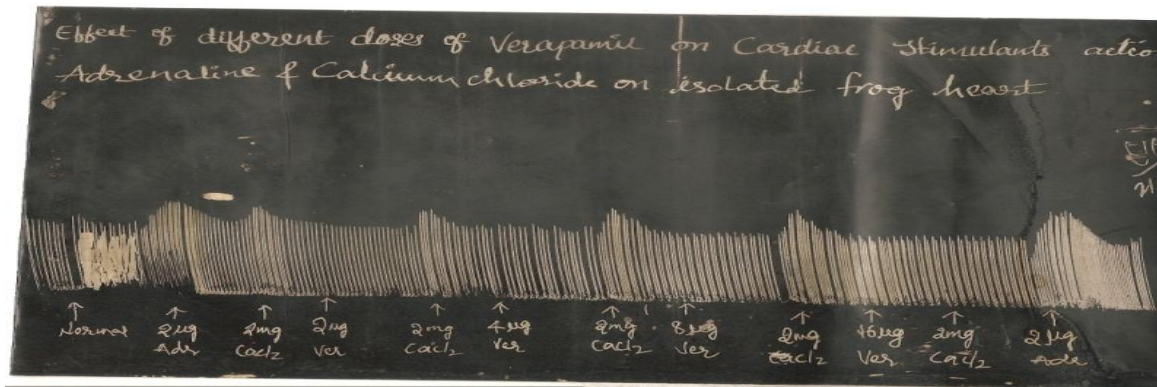 Effect of different doses of Verapamil on Cardiac Stimulants actio
Adrenaline & Calcium chloride on isolated frog heart
Normal
2µg Adr
2mg Cacl2
2µg Ver
2mg Cacl2
4µg Ver
2mg Cacl2
8µg Ver
2mg Cacl2
16µg Ver
2mg Cacl2
2µg Adr